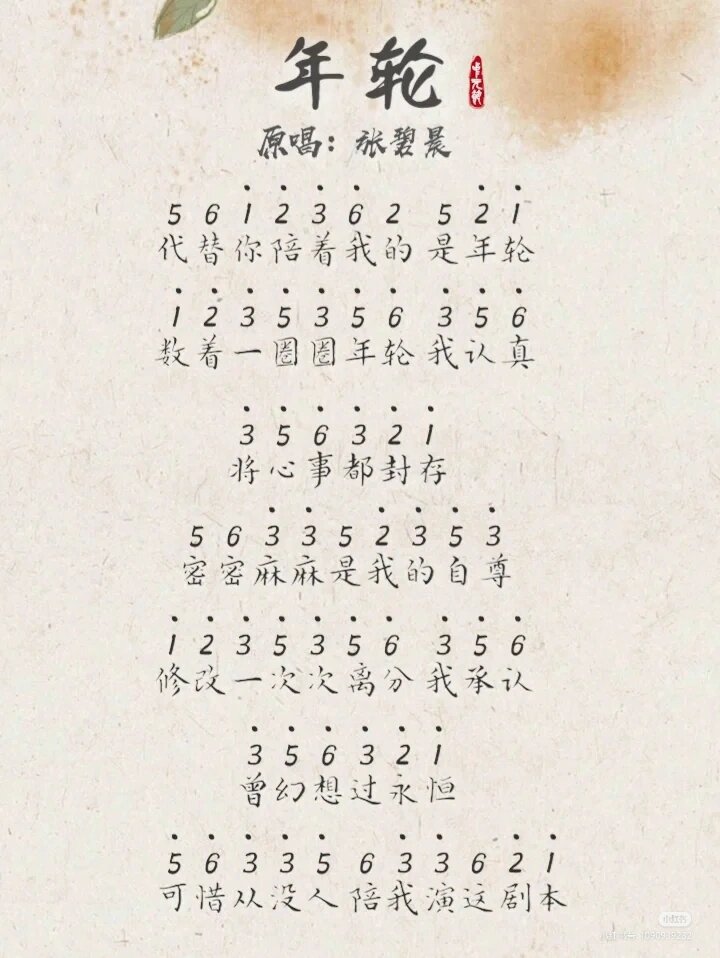 年轮
原唱：张碧晨
5 6 1̇ 2̇ 3̇ 6̇ 2 5 2̇ 1̇
代替你陪着我的 是年轮
1̇ 2̇ 3̇ 5̇ 3̇ 5̇ 6̇ 3̇ 5̇ 6̇
数着一圈圈年轮 我认真
3̇ 5̇ 6̇ 3̇ 2̇ 1̇
将心事都封存
5 6 3̇ 3̇ 5 2̇ 3̇ 5̇ 3̇
密密麻麻是我的自尊
1̇ 2̇ 3̇ 5̇ 3̇ 5̇ 6̇ 3̇ 5̇ 6̇
修改一次次离分 我承认
3̇ 5̇ 6̇ 3̇ 2̇ 1̇
曾幻想过永恒
5̇ 6̇ 3̇ 3̇ 5̇ 6 3̇ 3̇ 6 2̇ 1̇
可惜从没人 陪我演这剧本
小红书